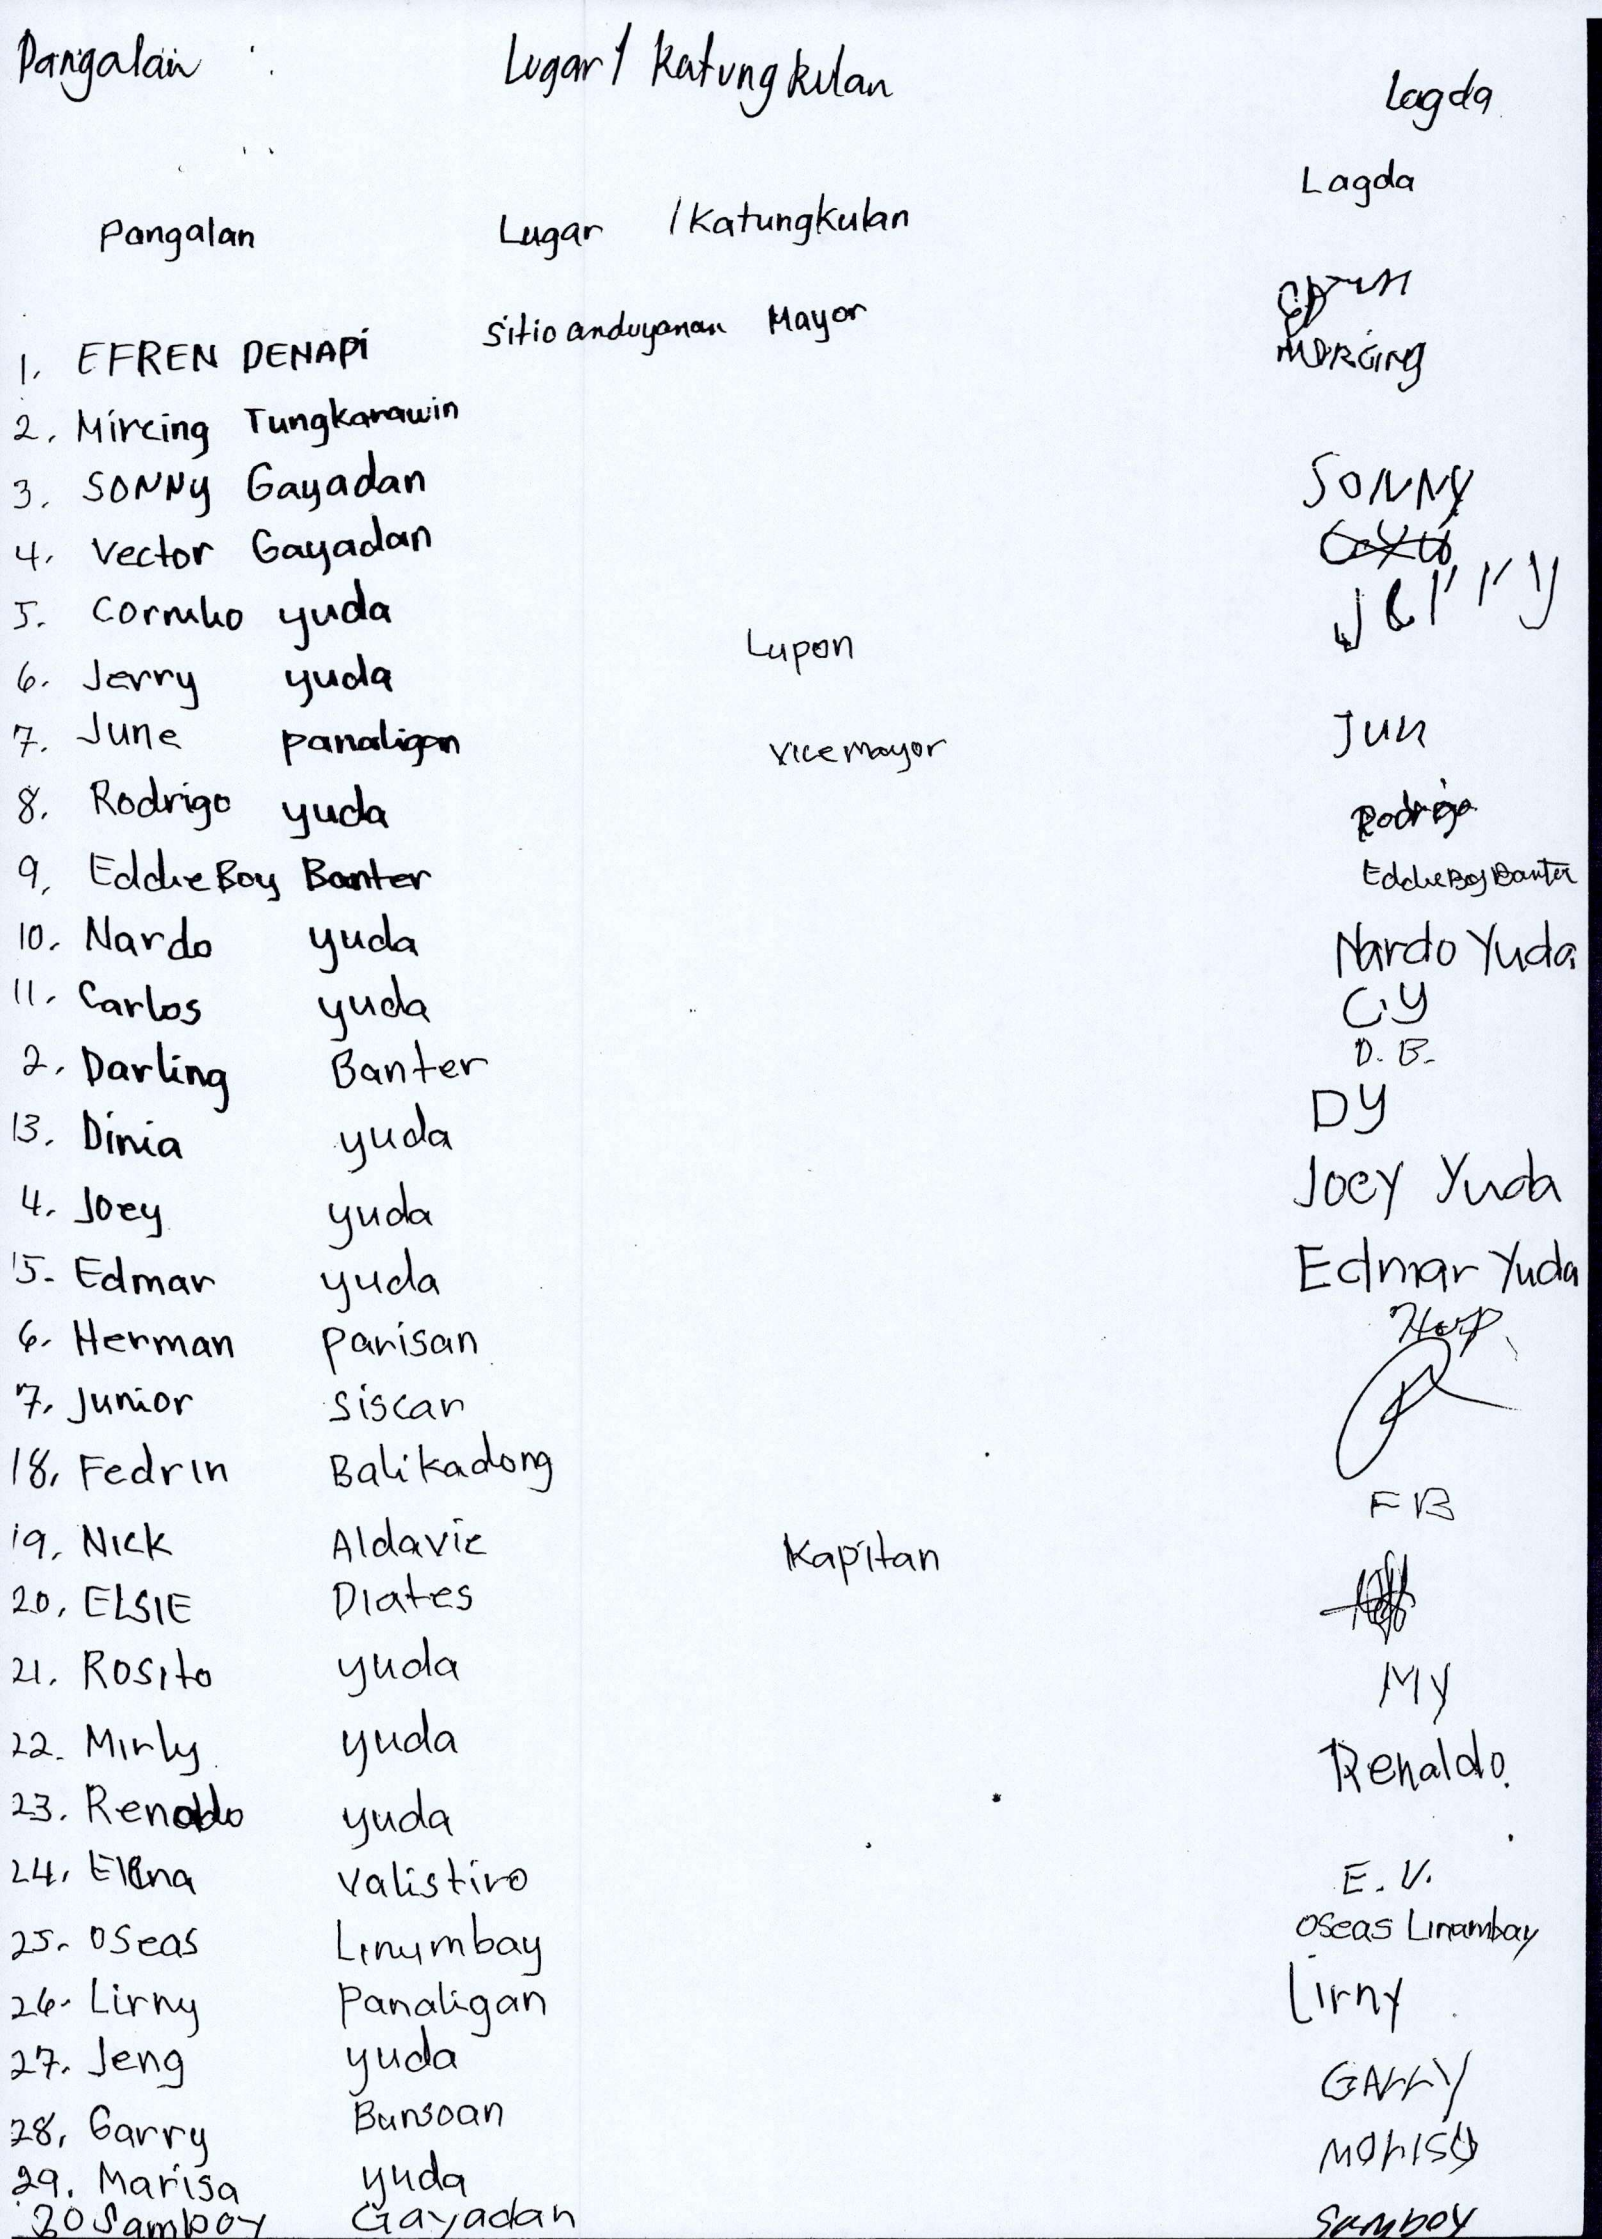 Pangalan Lugar / Katungkulan Lagda
Pangalan Lugar / Katungkulan Lagda
1. EFREN DENAPi Sitio anduyanan Mayor
2. Mircing Tungkarawin MDRCing
3. SONNy Gayadan SONNY
4. Vector Gayadan
5. yuda
6. Jerry yuda Lupon Jerry
7. June panaligan vice mayor Jun
8. Rodrigo yuda Rodrigo
9. Eddie Boy Banter Eddie Boy Banter
10. Nardo yuda Nardo Yuda
11. Carlos yuda C.y
2. Darling Banter D. B.
13. Dinia yuda Dy
4. Joey yuda Joey Yuda
15. Edmar yuda Edmar Yuda
6. Herman parisan
7. Junior siscar
18. Fedrin Balikadong FB
19. Nick Aldavie Kapitan
20. ELSIE Diates
21. Rosito yuda
22. Mirly yuda My
23. Renaldo yuda Renaldo.
24. Elena valistiro E. V.
25. Oseas Linumbay Oseas Linumbay
26. Lirny Panaligan Lirny
27. Jeng yuda
28. Garry Bunsoan GArry
29. Marisa yuda Morisa
30 Samboy Gayadan Samboy